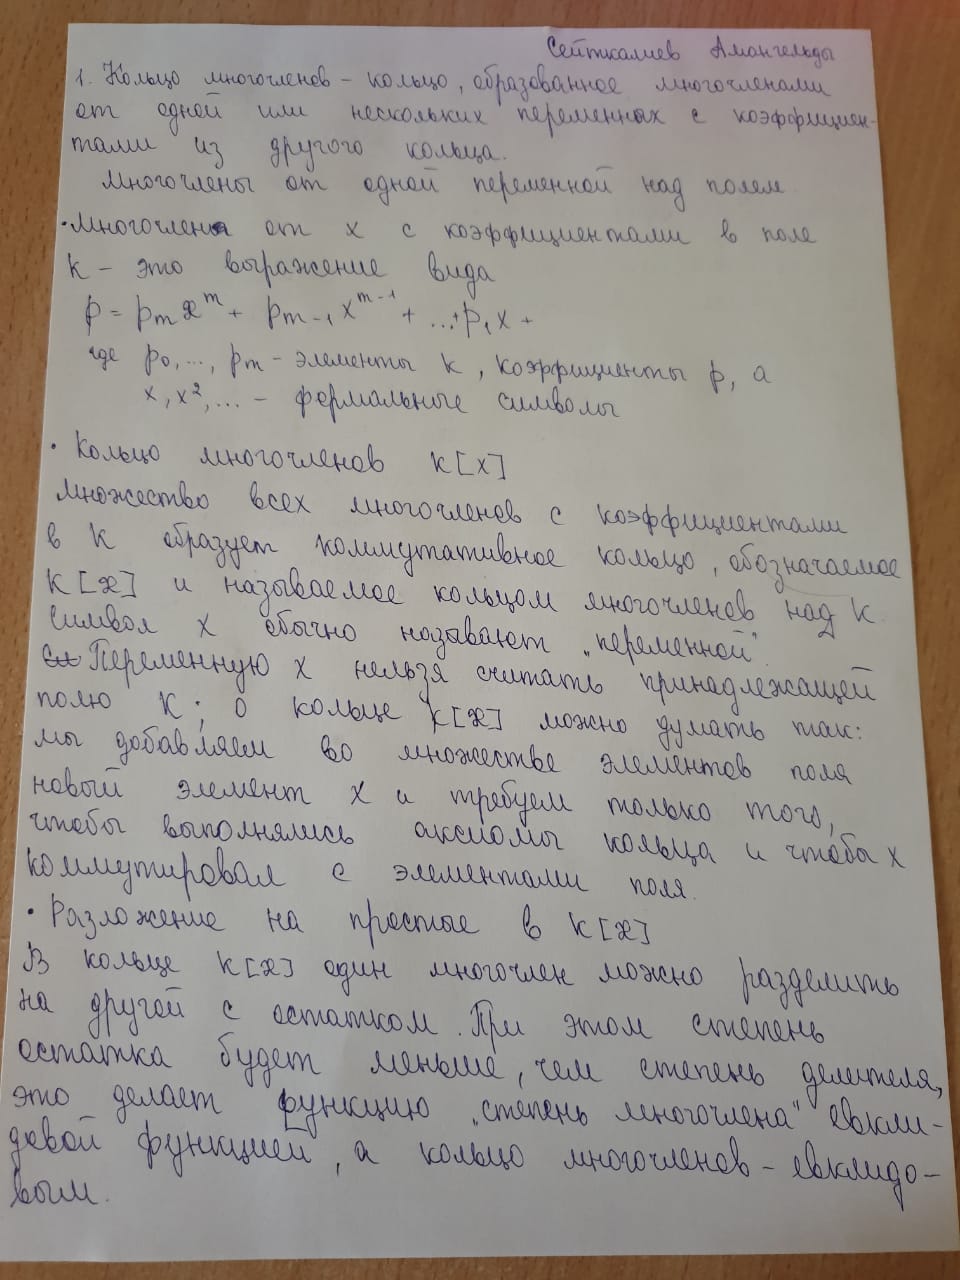 Сейткалиев Амангельды
1. Кольцо многочленов – кольцо, образованное многочленами
от одной или нескольких переменных с коэффициен-
тами из другого кольца.
Многочлены от одной переменной над полем
· Многочлена от x с коэффициентами в поле
k – это выражение вида
p = pm x^m + pm-1 x^m-1 + ...+p1 x +
где p0, ..., pm – элементы k, коэффициенты p, а
x, x², ... – формальные символы
· Кольцо многочленов k[x]
Множество всех многочленов с коэффициентами
в k образует коммутативное кольцо, обозначаемое
k[x] и называемое кольцом многочленов над k.
Символ x обычно называют „переменной".
Переменную x нельзя считать принадлежащей
полю k; о кольце k[x] можно думать так:
мы добавляем во множестве элементов поля
новый элемент x и требуем только того,
чтобы выполнялись аксиомы кольца и чтобы x
коммутировал с элементами поля.
· Разложение на простые в k[x]
В кольце k[x] один многочлен можно разделить
на другой с остатком. При этом степень
остатка будет меньше, чем степень делителя,
это делает функцию „степень многочлена" евкли-
довой функцией, а кольцо многочленов – евклидо-
вым.